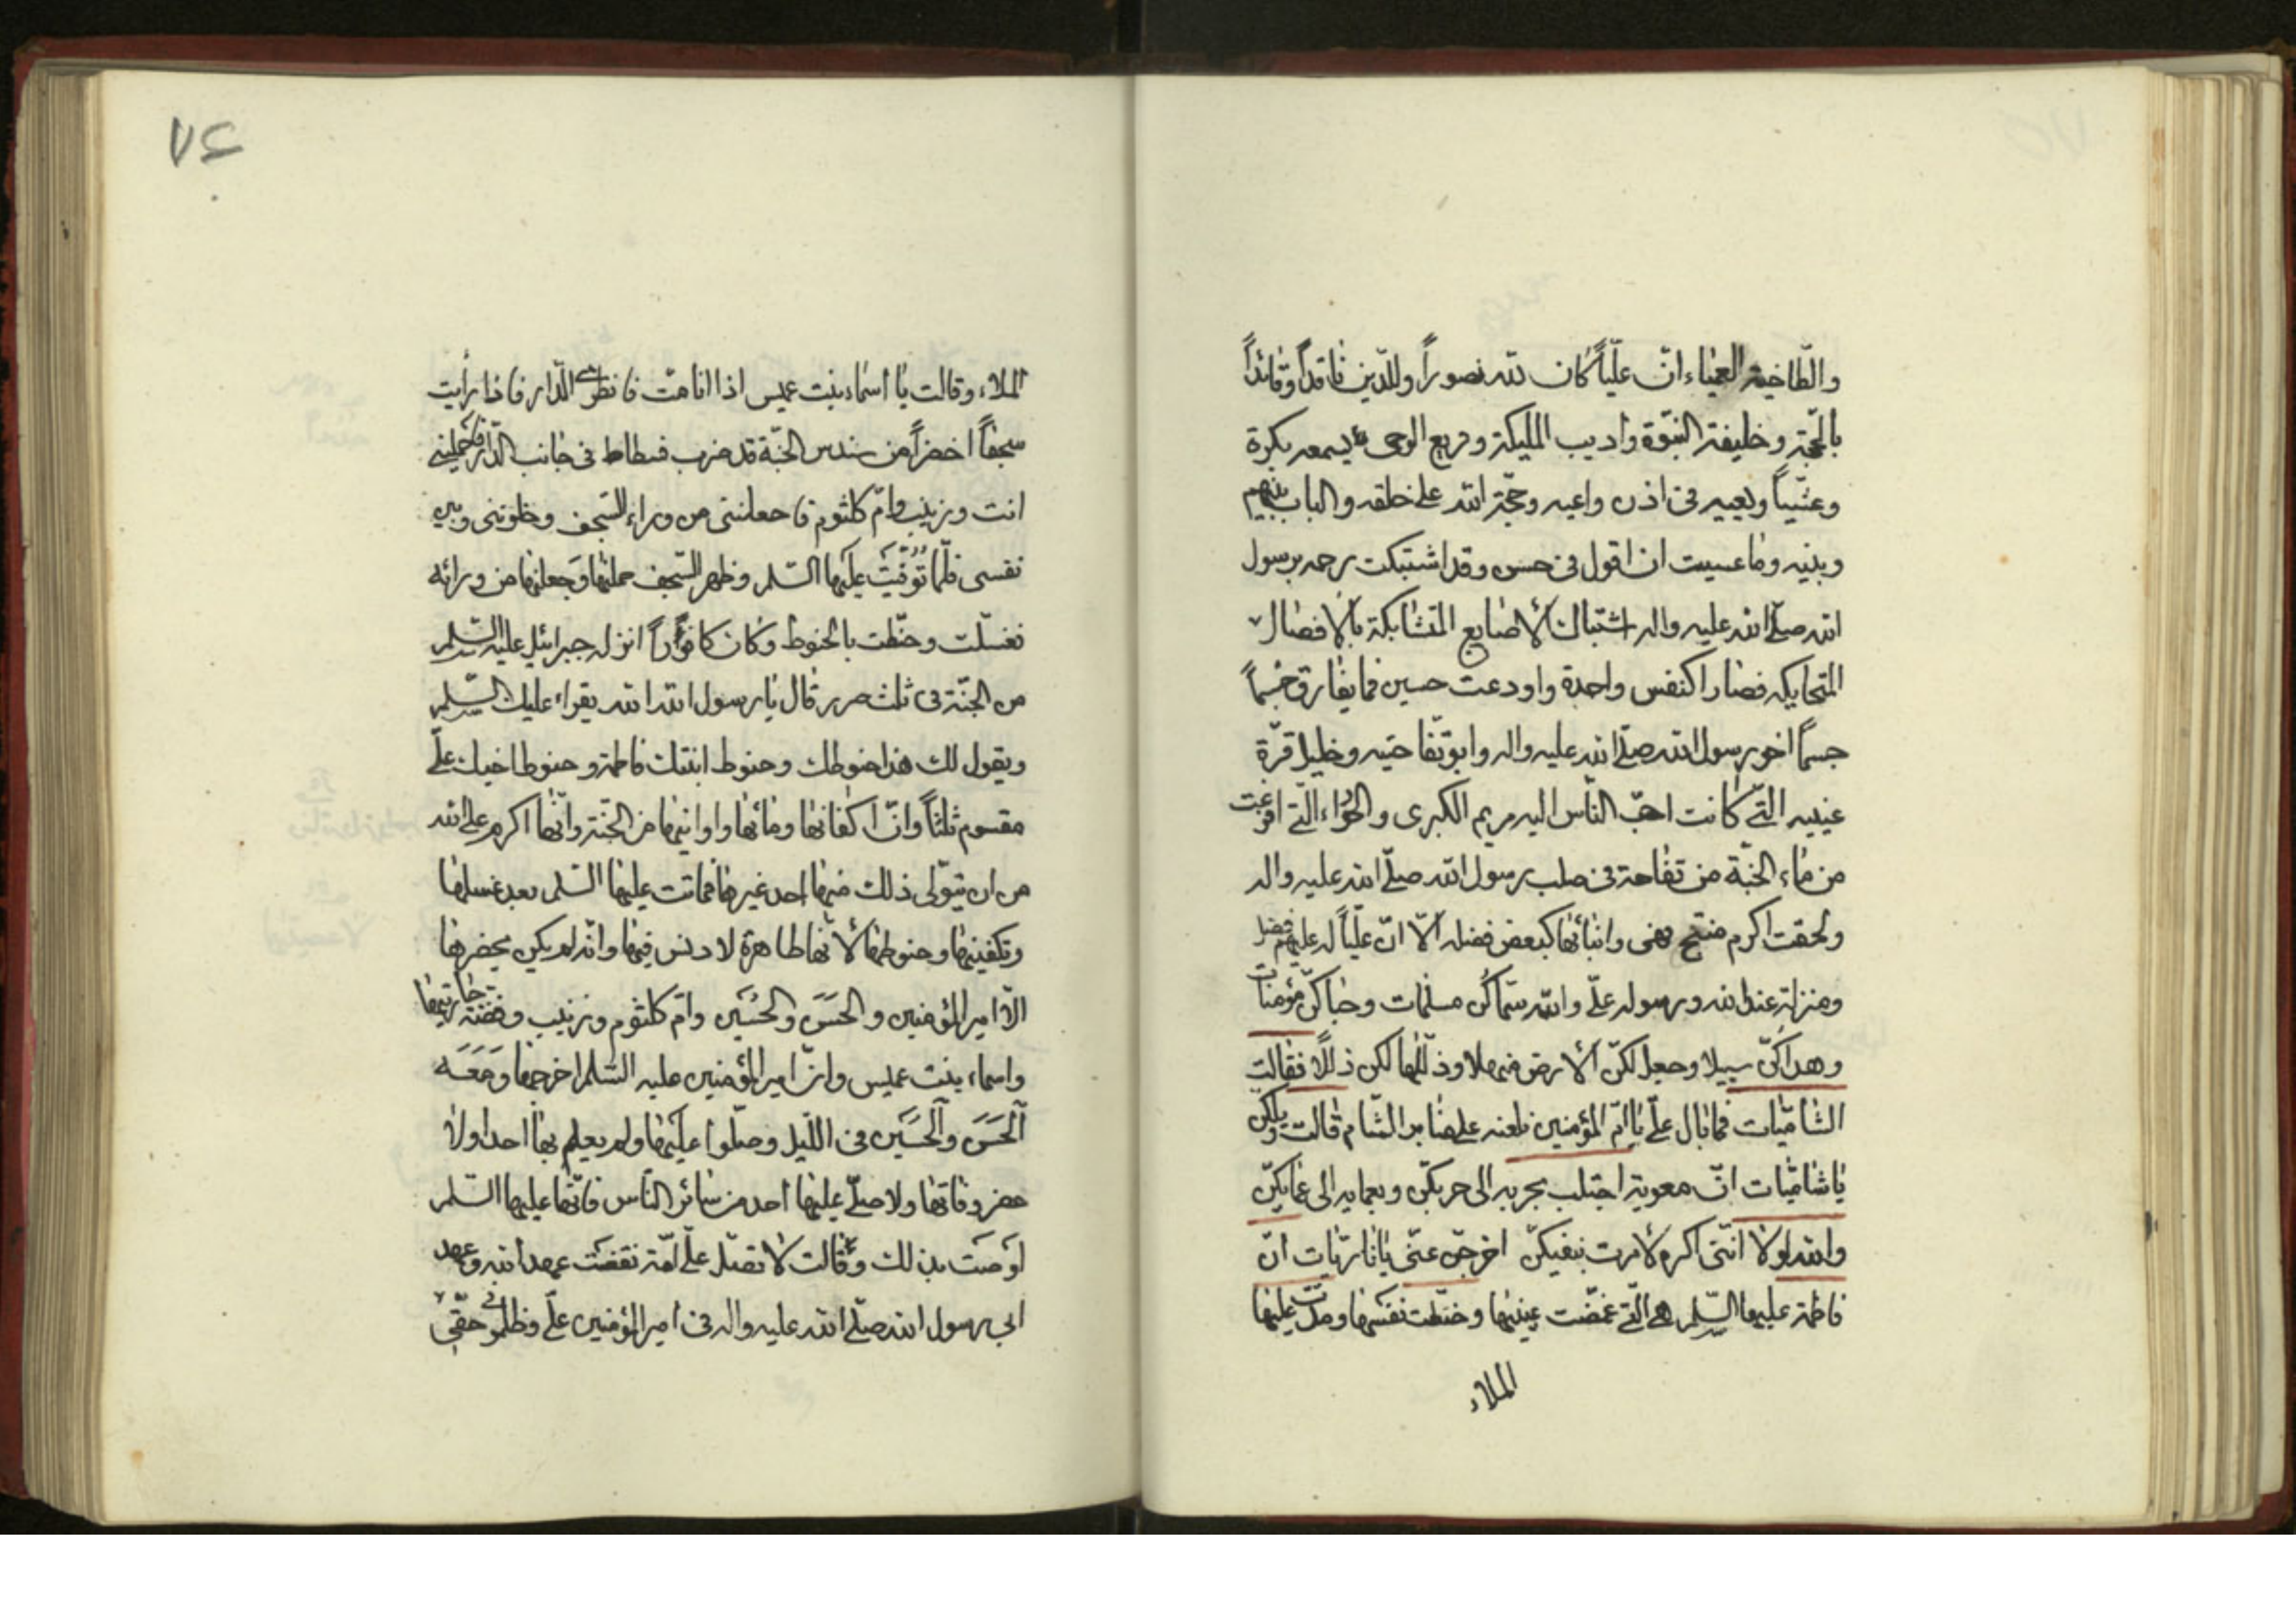 والطاخية العمياء انّ عليّاً كان لله نصوراً وللدّين ناقداً وقائداً
بالحجّة وخليفة النبّوة واديب المليكة وقريع الوحى يسمعه بكرة
وعشيّاً ويعيه فى اذن واعيه وحجّة الله على خلقه والباب بينهم
وبينه وما عسيت ان اقول فى حسن وقد اشتبكت رحمه برسول
الله صلّى الله عليه واله اشتباك الأصابع المتشابكة بالافصال
المتحابكه فصارا كنفس واحدة واودعت حسين فما يفارق جسماً
جسماً اخو رسول الله صلّى الله عليه واله وابو تفاحتيه وخليل قرّة
عينيه الّتى كانت احبّ النّاس اليه مريم الكبرى والحوّراء الّتى افرغت
من ماء الجنّة من تفاحة فى صلب رسول الله صلّى الله عليه واله
ولحقت اكرم منتج فهى وابنائها كبعض فضله الّا انّ عليّاً له عليهم فضل
ومنزلة عند الله ورسوله علّى والله سمّاكنّ مسلمات وحباكنّ مؤمنات
وهداكنّ سبيلا وجعل لكنّ الأرض مهلا وذلّلها لكن ذللًا فقالت
الشاميّات فما بال علّى يا امّ المؤمنين نلعنه على منابر الشّام قالت ويلكن
يا شاميّات انّ معوية اجتلب بحربه الى حربكنّ وبعمايه الى عماكنّ
والله لولا انّنى اكرم لامرت بنفيكنّ اخرجن عنّى يا ناريّات انّ
فاطمة عليها السّلم هى الّتى غمّضت عينيها وحنّطت نفسها ومدّت عليها
الملاء
٧٤
الملاء وقالت يا اسماء بنت عميس اذا انا متّ فانظرى الدّار فاذا رأيت
سجفاً اخضراً من سندس الجنّة قد ضرب فسطاط فى جانب الدّار فاحملينى
انت وزينب وامّ كلثوم فاجعلننى من وراء السّجف وخلونّى وبين
نفسى فلمّا توفّيت عليها السّلم وظهر السّجف حملناها وجعلناها من ورائه
فغسّلت وحنّطت بالحنوط وكان كافوراً انزله جبرائيل عليه السّلم
من الجنّة فى ثلث صرر قال يا رسول الله الله يقراء عليك السّلم
ويقول لك هذا حنوطك وحنوط ابنتك فاطمة وحنوط اخيك علّى
مقسوم ثلثاً وانّ اكفانها ومائها واوانيها من الجنّة وانّها اكرم على الله
من ان يتولّى ذلك منها احد غيرها فماتت عليها السّلم بعد غسلها
وتكفينها وحنوطها لأنّها طاهرة لا دنس فيها وانّه لم يكن يحضرها
الّا امير المؤمنين والحسن والحسين وامّ كلثوم وزينب وفضّة جاريتها
واسماء بنت عميس وانّ امير المؤمنين عليه السّلم اخرجها ومعه
الحسن والحسين فى اللّيل وصلّوا عليها ولم يعلم بها احدا ولا
حضر وفاتها ولا صلّى عليها احد من سائر النّاس فانّها عليها السّلم
اوصت بذلك وقالت لا تصلّ علىّ امّة نقضت عهد الله وعهد
ابى رسول الله صلّى الله عليه واله فى امير المؤمنين علّى وظلمونى حقّى